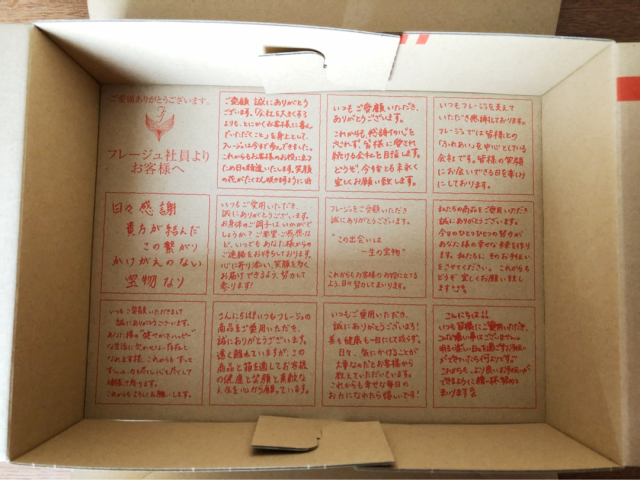 ご愛顧ありがとうございます。
フレージュ社員より
お客様へ
ご愛顧 誠にありがとうご
ざいます。「会社を大きくする
よりも、とにかくお客様に喜ん
でいただくこと」を
フレージュは今まで歩んできました。
これからもお客様のお役に立つ
ため日々
の花がたくさん咲かすように
いつもご愛顧いただき、
ありがとうございます。
これからも、感謝の心を
忘れず、皆様に愛され
続ける会社を目指します。
どうぞ、今後とも末永く
宜しくお願い致します。
いつもフレージュを支えて
いただき感謝しております。
フレージュでは皆様との
「ふれあい」を中心としている
会社です。皆様の笑顔
にお会いできる日を
にしております。
日々感謝
貴方が結んだ
この繋がり
かけがえのない
宝物なり
いつもご愛用いただき、
誠にありがとうございます。
お身体のご調子はいかがで
しょうか?ご要望・ご感想な
ど、いつでもあなた様からの
ご連絡をお待ちしております。
心に寄り添い、笑顔を多く
お届けできるよう、努力して
参ります!
フレージュをご愛顧いただき
誠にありがとうございます。
"この出会いは
一生の宝物"
これからもお客様のお役に立てる
よう、日々努力してまいります。
私たちの商品をご愛用いただき
誠にありがとうございます。
今日のひとつひとつの努力が
あなた様の幸せな未来を作り
ます。私たちに、そのお手伝い
をさせてください。これからも
どうぞ 宜しくお願い致
します
いつもご愛顧いただきまして
誠にありがとうございます。
あなた様の"健やかさ・ハッピー"
な生活に欠かせない存在と
なれます様、これからも
頑張って参ります。
これからもよろしくお願い致します。
こんにちは!いつもフレージュの
商品をご愛用いただき、
誠にありがとうございます。
遠く離れていますが、この
商品と箱を通してお客様
の健康と笑顔と素敵な
人生を心から願っています。
いつもご愛用いただき、
誠にありがとうございます!
美も健康も一日にして成らず。
日々、気にかけることが
大事なのだとお客様から
教えていただいています。
これからも幸せな毎日の
お力になれたら嬉しいです!
こんにちは
いつも皆様にご愛用いただき、
こんな嬉しい事はございません。
明るく楽しい日々を過ごすお手伝い
ができていたら何よりです。
これからも、より良いお手伝いが
できるように
まいります